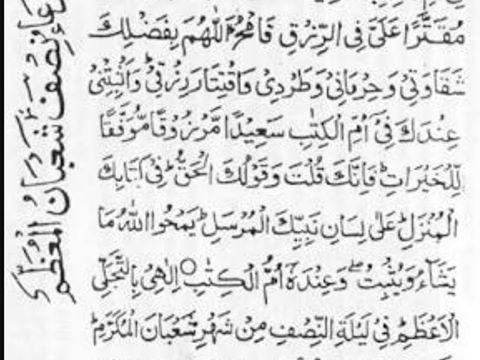 دعاءِ نصف شعبان المعظم
مُقَتَّرًا عَلَىَّ فِى الرِّزْقِ فَامْحُ اَللّٰهُمَّ بِفَضْلِكَ
شَقَاوَتِىْ وَحِرْمَانِىْ وَطَرْدِىْ وَاقْتِتَارَ رِزْقِىْ وَاَثْبِتْنِىْ
عِنْدَكَ فِىْ اُمِّ الْكِتٰبِ سَعِيْدًا مَّرْزُوْقًا مُّوَفَّقًا
لِّلْخَيْرَاتِ فَاِنَّكَ قُلْتَ وَقَوْلُكَ الْحَقُّ فِىْ كِتَابِكَ
الْمُنَزَّلِ عَلٰى لِسَانِ نَبِيِّكَ الْمُرْسَلِ يَمْحُوا اللّٰهُ مَا
يَشَآءُ وَيُثْبِتُ وَعِنْدَهٗ اُمُّ الْكِتٰبِ ○ اِلٰهِىْ بِالتَّجَلِّىْ
الْاَعْظَمِ فِىْ لَيْلَةِ النِّصْفِ مِنْ شَهْرِ شَعْبَانَ الْمُكَرَّمِ